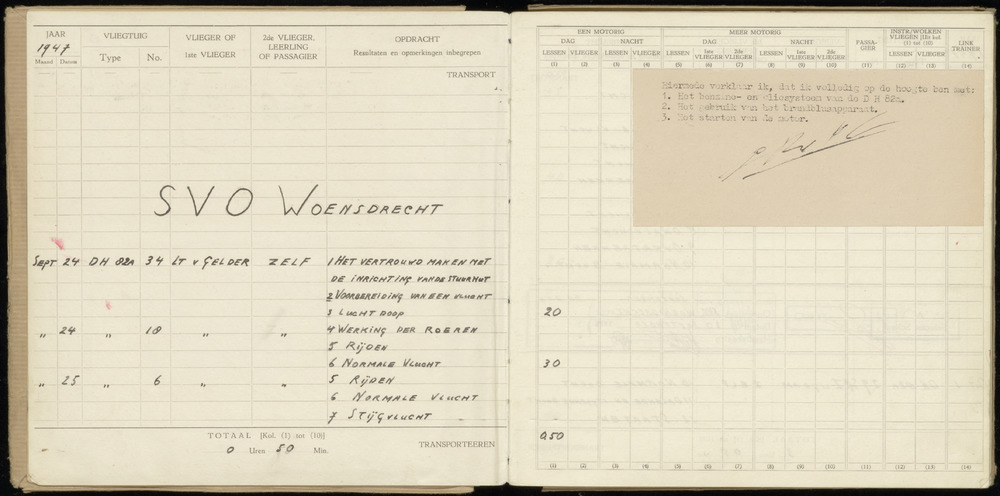 JAAR 1947
Maand Datum
VLIEGTUIG
Type No.
VLIEGER OF 1ste VLIEGER
2de VLIEGER, LEERLING OF PASSAGIER
OPDRACHT
Resultaten en opmerkingen inbegrepen
TRANSPORT
SVO WOENSDRECHT
SEPT 24 DH 82A 34 LT v GELDER ZELF 1 HET VERTROUWD MAKEN MET
DE INRICHTING VAN DE STUURHUT
2 VOORBEREIDING VAN EEN VLUCHT
3 LUCHTDOOP
„ 24 „ 18 „ „ 4 WERKING DER ROEREN
5 RIJDEN
6 NORMALE VLUCHT
„ 25 „ 6 „ „ 5 RIJDEN
6 NORMALE VLUCHT
7 STIJGVLUCHT
TOTAAL [Kol. (1) tot (10)]
0 Uren 50 Min.
TRANSPORTEEREN
EEN MOTORIG
DAG NACHT
LESSEN VLIEGER LESSEN VLIEGER
(1) (2) (3) (4)
MEER MOTORIG
DAG NACHT
LESSEN 1ste VLIEGER 2de VLIEGER LESSEN 1ste VLIEGER 2de VLIEGER
(5) (6) (7) (8) (9) (10)
PASSA-
GIER
(11)
INSTR/WOLKEN
VLIEGEN [Uit kol.
(1) tot (10)]
LESSEN VLIEGER
(12) (13)
LINK
TRAINER
(14)
Hiermede verklaar ik, dat ik volledig op de hoogte ben met:
1. Het benzine- en oliesysteem van de D H 82a.
2. Het gebruik van het brandblusapparaat.
3. Het starten van de motor.
20
30
0,50
(1) (2) (3) (4) (5) (6) (7) (8) (9) (10) (11) (12) (13) (14)